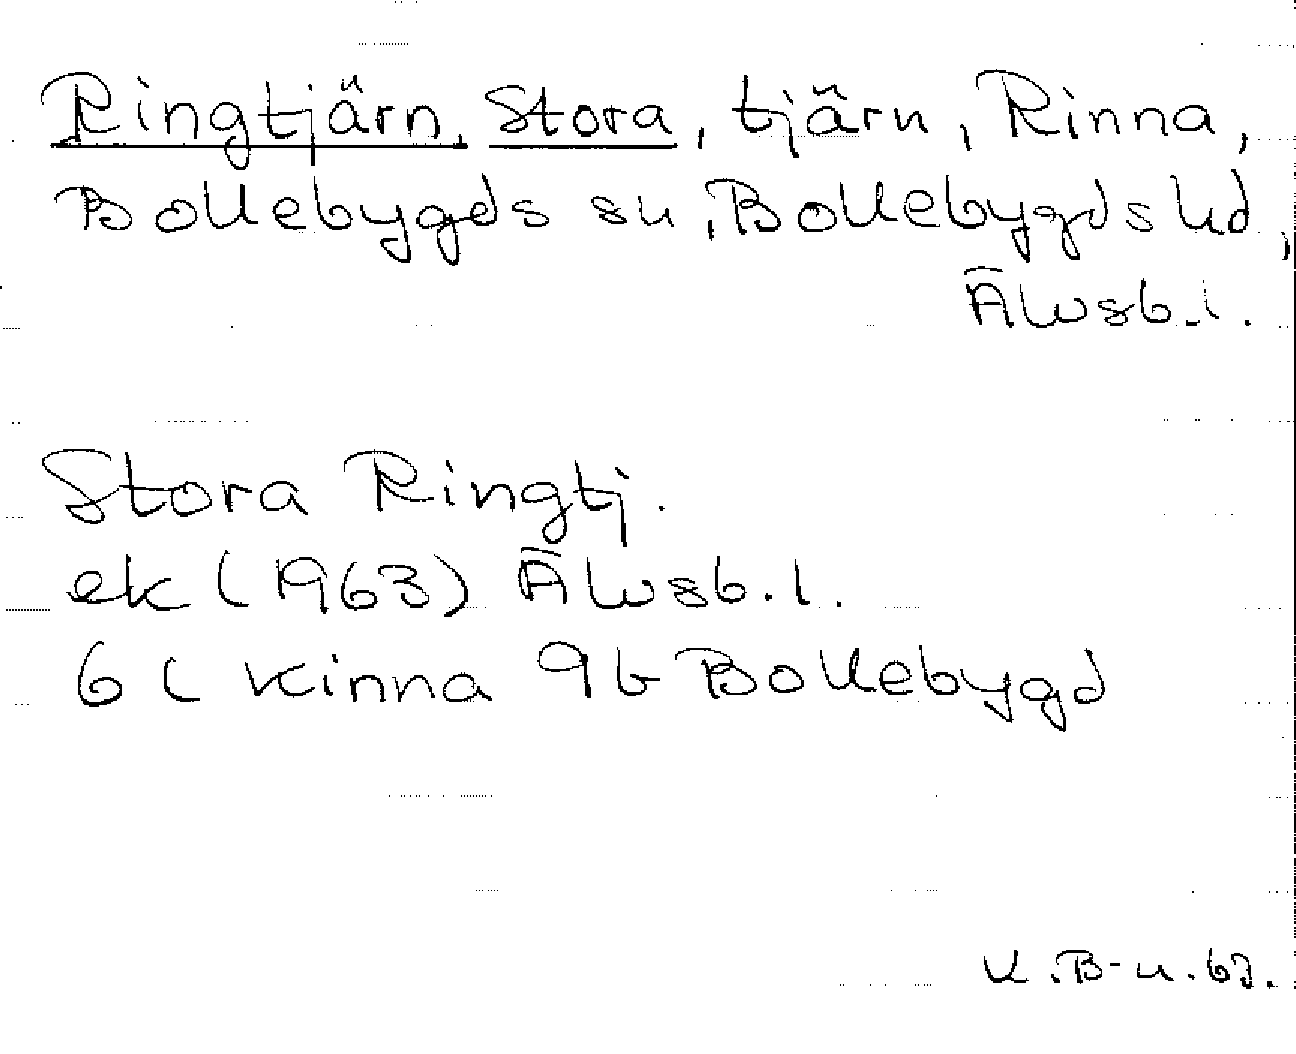 Ringtjärn, Stora, tjärn, Rinna,
Bollebygds sn, Bollebygds hd,
Älvsb. l.
Stora Ringtj.
ek (1963) Älvsb. l.
6 C Kinna 9 b Bollebygd
K. B-n. 63.